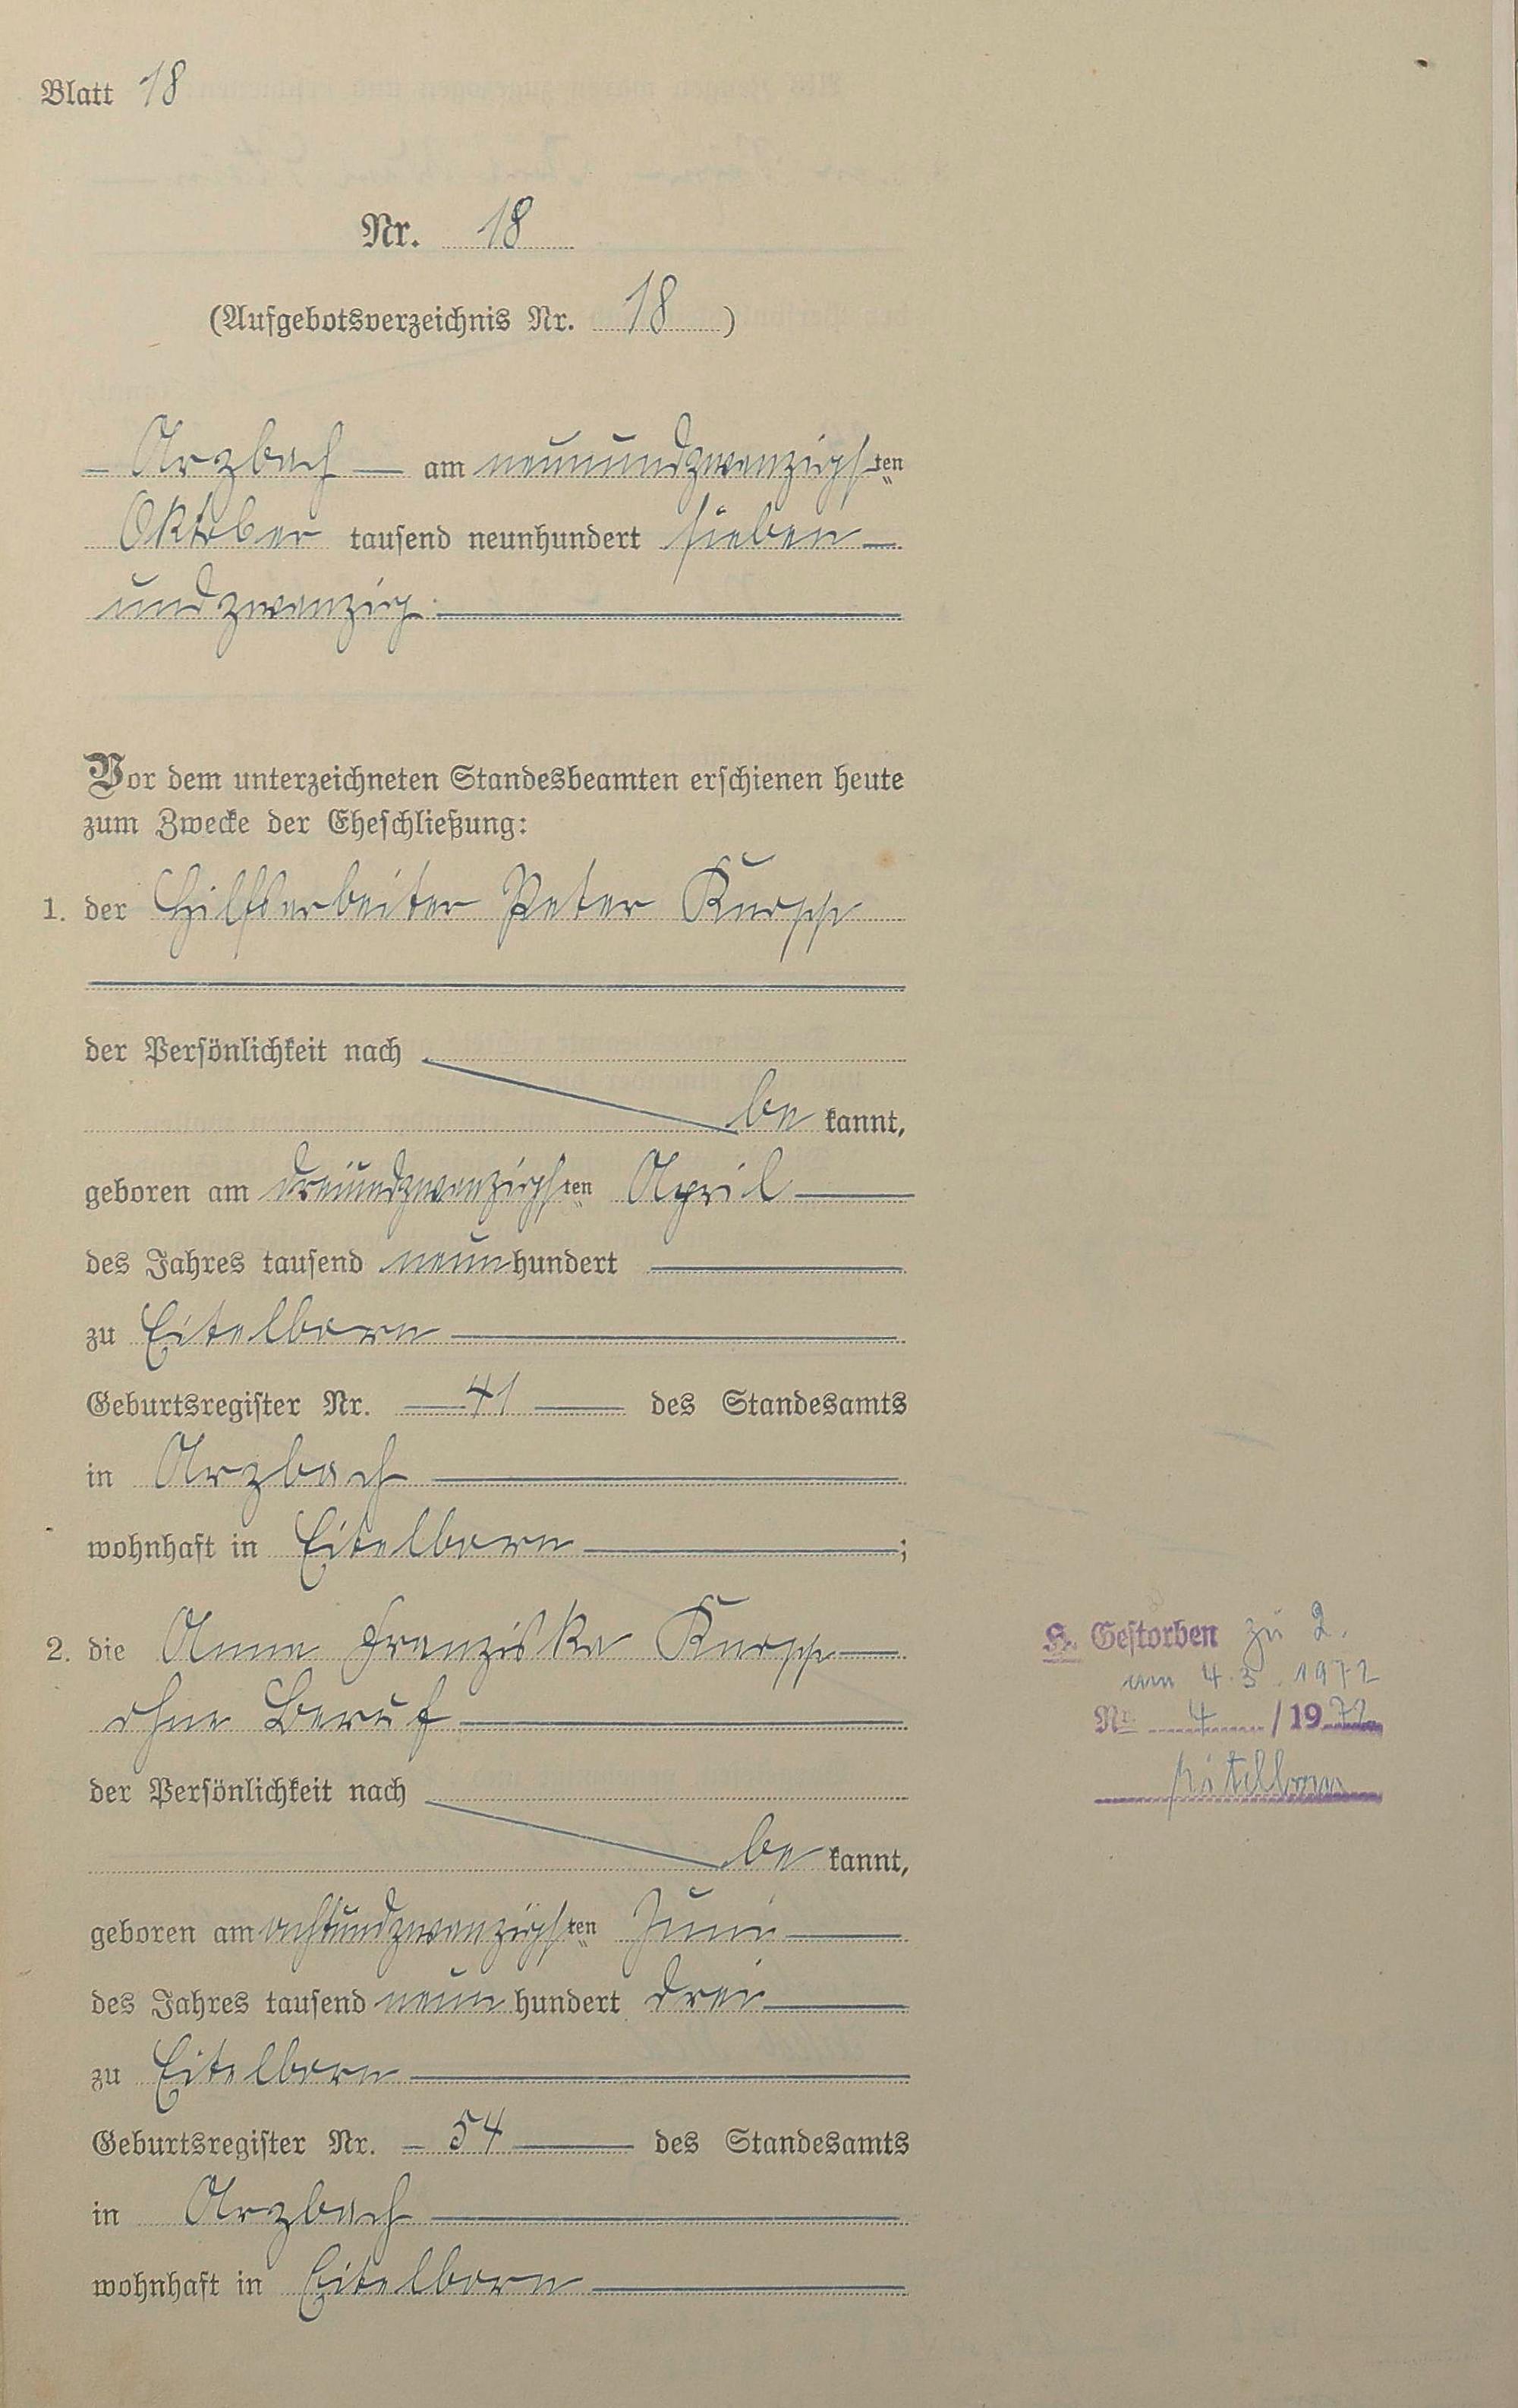 Blatt 18
Nr. 18
(Aufgebotsverzeichnis Nr. 18)
Arzbach am neunundzwanzigsten
Oktober tausend neunhundert sieben
undzwanzig.
Vor dem unterzeichneten Standesbeamten erschienen heute
zum Zwecke der Eheschließung:
1. der Hilfsarbeiter Peter Knopp
der Persönlichkeit nach
be kannt,
geboren am dreiundzwanzigsten April
des Jahres tausend neunhundert
zu Eitelborn
Geburtsregister Nr. 41 des Standesamts
in Arzbach
wohnhaft in Eitelborn ;
2. die Anna Franziska Knopp
ohne Beruf
der Persönlichkeit nach
be kannt,
geboren am achtundzwanzigsten Juni
des Jahres tausend neunhundert drei
zu Eitelborn
Geburtsregister Nr. 54 des Standesamts
in Arzbach
wohnhaft in Eitelborn
Gestorben zu 2.
am 4.3.1972
Nr. 4 / 1972
Eitelborn